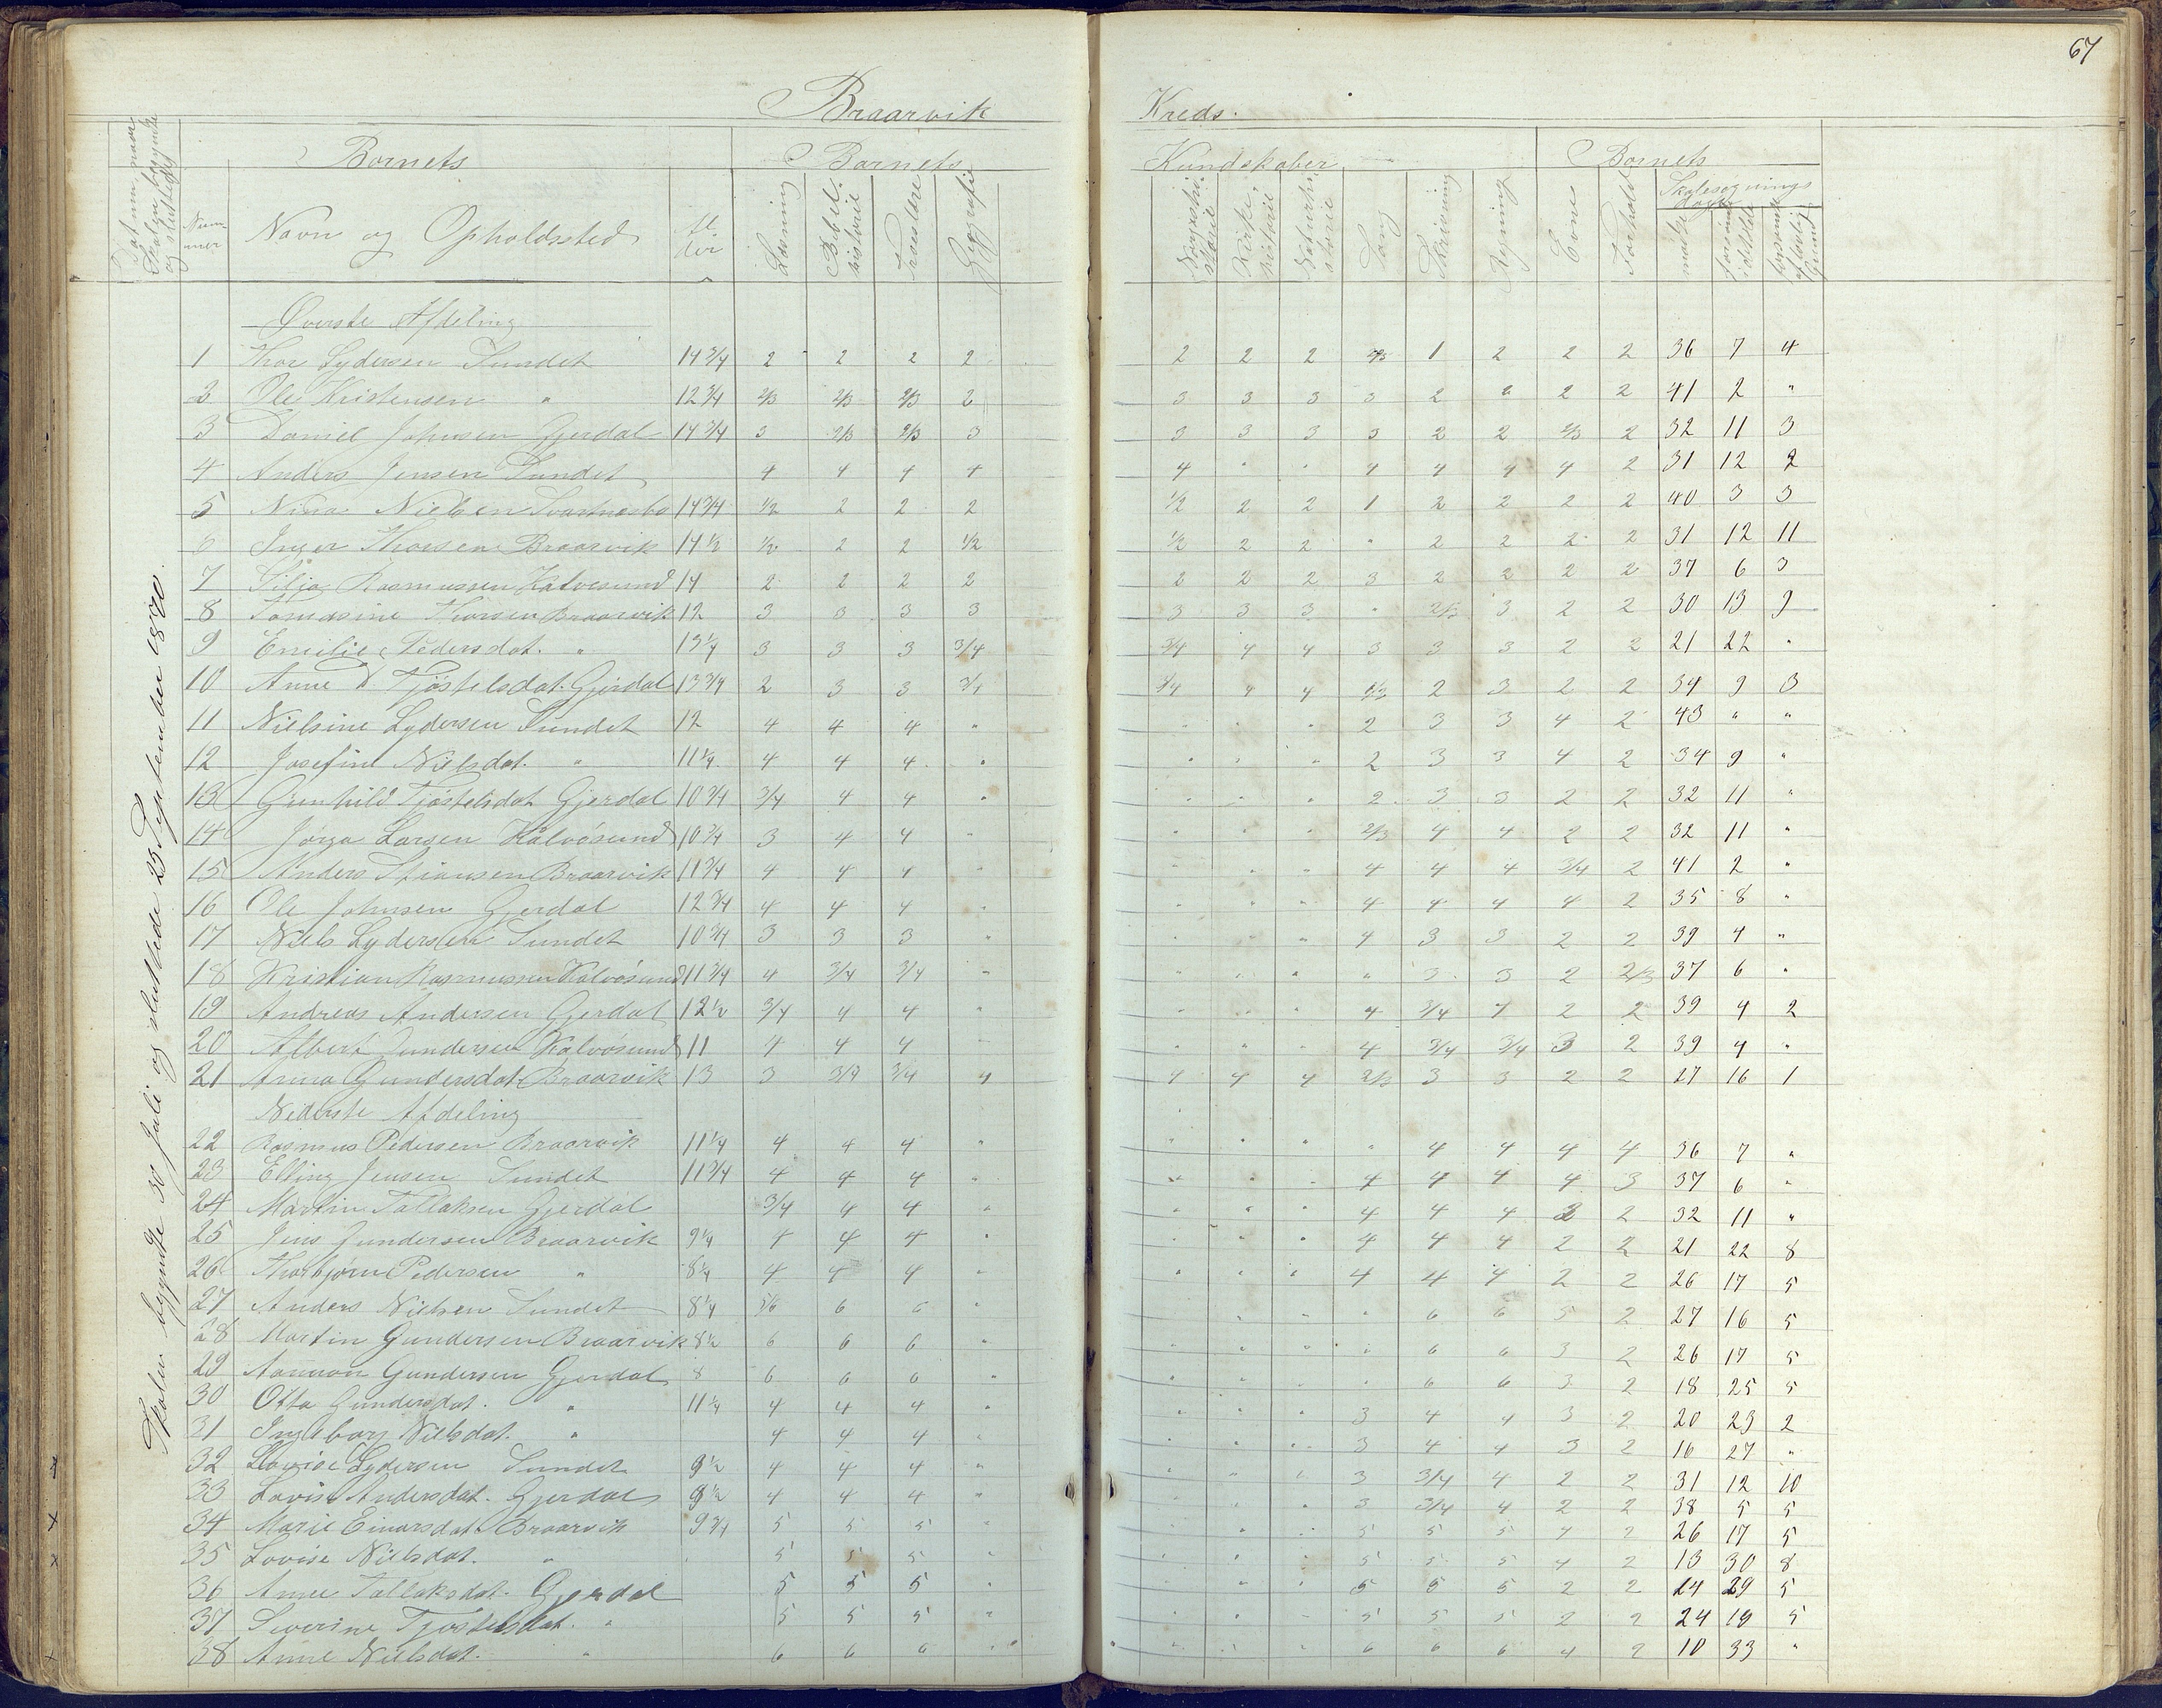 67
Braarvik Kreds.
Datum, naar Skolen begyndte og sluttedes
Barnets Barnets Kundskaber Barnets
Nummer Navn og Opholdssted Alder Læsning Bibelhistorie Troeslære Geografie Norgeshistorie Kirkehistorie Naturhistorie Sang Skrivning Regning Evne Forhold Skolesøgningsdage mødte forsømte forsømte af lovlig Grund
Skolen begyndte 30 Juli og sluttede 23 September 1870.
Øverste Afdeling
1 Thor Lydersen Sundet 14 3/4 2 2 2 2 2 2 2 2/3 1 2 2 2 36 7 4
2 Ole Kristensen " 12 3/4 2/3 2/3 2/3 2 3 3 3 3 2 2 2 2 41 2 "
3 Daniel Johnsen Gjerdal 14 3/4 3 2/3 2/3 3 3 3 3 3 2 2 2/3 2 32 11 3
4 Anders Jensen Sundet 4 4 4 4 4 " " 4 4 4 4 2 31 12 2
5 Nina Nielsen Svartnæsbo 14 3/4 1/2 2 2 2 1/2 2 2 1 2 2 2 2 40 3 3
6 Inger Thorsen Braarvik 14 1/2 1/2 2 2 1/2 1/2 2 2 " 2 2 2 2 31 12 11
7 Silja Rasmussen Kalvesund 14 2 2 2 2 2 2 2 3 2 2 2 2 37 6 3
8 Tomasine Thorsen Braarvik 12 3 3 3 3 3 3 3 " 2/3 3 2 2 30 13 9
9 Emilie Pedersdat. " 13 1/4 3 3 3 3/4 3/4 4 4 3 3 3 2 2 21 22 "
10 Anne D. Tjøstelsdat. Gjerdal 13 3/4 2 3 3 3/4 3/4 4 4 2/3 2 3 2 2 34 9 3
11 Nielsine Lydersen Sundet 12 4 4 4 " " " " 2 3 3 4 2 43 " "
12 Josefine Nielsdat. " 11 1/4 4 4 4 " " " " 2 3 3 4 2 34 9 "
13 Gunhild Tjøstelsdat Gjerdal 10 3/4 3/4 4 4 " " " " 2 3 3 2 2 32 11 "
14 Jørga Larsen Kalvøsund 10 3/4 3 4 4 " " " " 2/3 4 4 2 2 32 11 "
15 Anders Stiansen Braarvik 11 3/4 4 4 4 " " " " 4 4 4 3/4 2 41 2 "
16 Ole Johnsen Gjerdal 12 3/4 4 4 4 " " " " 4 4 4 4 2 35 8 "
17 Niels Lydersen Sundet 10 3/4 3 3 3 " " " " 4 3 3 2 2 39 4 "
18 Kristian Rasmussen Kalvøsund 11 3/4 4 3/4 3/4 " " " " " 3 3 2 2/3 37 6 "
19 Andreas Andersen Gjerdal 12 1/2 3/4 4 4 " " " " 4 3/4 4 2 2 39 4 2
20 Albert Gundersen Kalvøsund 11 4 4 4 " " " " 4 3/4 3/4 3 2 39 4 "
21 Anna Gundersdat Braarvik 13 3 3/4 3/4 4 4 4 4 2/3 3 3 2 2 27 16 1
Nederste Afdeling
22 Rasmus Pedersen Braarvik 11 1/4 4 4 4 " " " " " 4 4 4 4 36 7 "
23 Elling Jensen Sundet 11 3/4 4 4 4 " " " " 4 4 4 4 3 37 6 "
24 Martin Tallaksen Gjerdal 3/4 4 4 " " " " 4 4 4 3 2 32 11 "
25 Jens Gundersen Braarvik 9 1/4 4 4 4 " " " " 4 4 4 2 2 21 22 8
26 Thorbjørn Pedersen " 8 1/4 4 4 4 " " " " 4 4 4 2 2 26 17 5
27 Anders Nielsen Sundet 8 1/4 5/6 6 6 " " " " 6 6 5 2 27 16 5
28 Martin Gundersen Braarvik 8 1/2 6 6 6 " " " " " 6 6 3 2 26 17 5
29 Aamon Gundersen Gjerdal 8 6 6 6 " " " " " 6 6 3 2 18 25 5
30 Otta Gundersdat. " 11 1/4 4 4 4 " " " " 3 4 4 3 2 20 23 2
31 Ingeborg Nielsdat. " 4 4 4 " " " " 3 4 4 3 2 16 27 "
32 Lovise Lydersen Sundet 9 1/2 4 4 4 " " " " 3 3/4 4 2 2 31 12 10
33 Lovise Andersdat. Gjerdal 9 1/2 4 4 4 " " " " 3 3/4 4 2 2 38 5 5
34 Marie Einarsdat Braarvik 9 3/4 5 5 5 " " " " 5 5 5 4 2 26 17 5
35 Lovise Nielsdat. " 5 5 5 " " " " 5 5 5 4 2 13 30 8
36 Anne Tallaksdat. Gjerdal 5 5 5 " " " " 5 5 5 2 2 14 29 5
37 Severine Tjøstelsdat. " 5 5 5 " " " " 5 5 5 2 2 24 19 5
38 Anne Nielsdat. " 6 6 6 " " " " 6 6 6 4 2 10 33 "